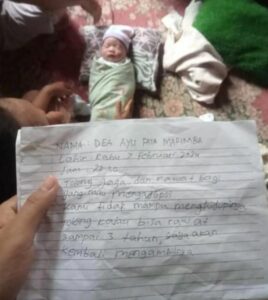 NAMA : DEA AYU RAYA MARIMBA
Lahir Rabu 7 Februari 2024
Jam : 22.10
Tolong jaga dan rawat bagi
yang mau mengadopsi
kami tidak mampu menghidupinya
tolong kalau bisa rawat
sampai 3 tahun, saya akan
kembali mengambilnya